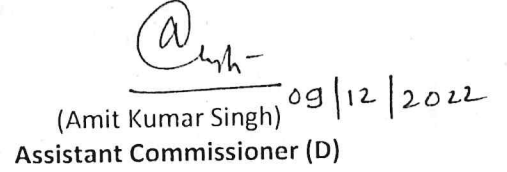 (Amit Kumar Singh) 09/12/2022
Assistant Commissioner (D)